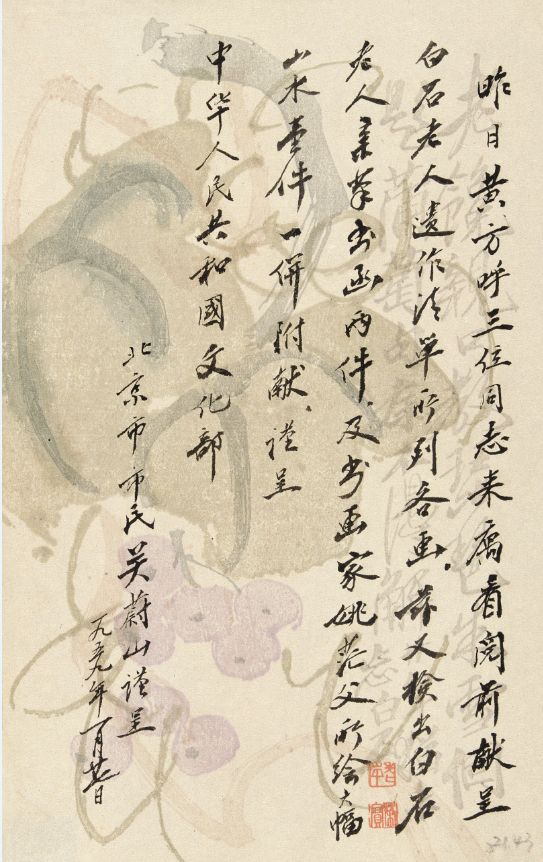 昨日黄方呼三位同志来寓看阅前献呈
白石老人遗作清单所列各画,兹又检出白石
老人亲笔书函两件,及书画家姚茫父所绘大幅
山水壹件一併附献,谨呈
中华人民共和國文化部
北京市市民关蔚山谨呈
一九五九年一月廿七日
2143